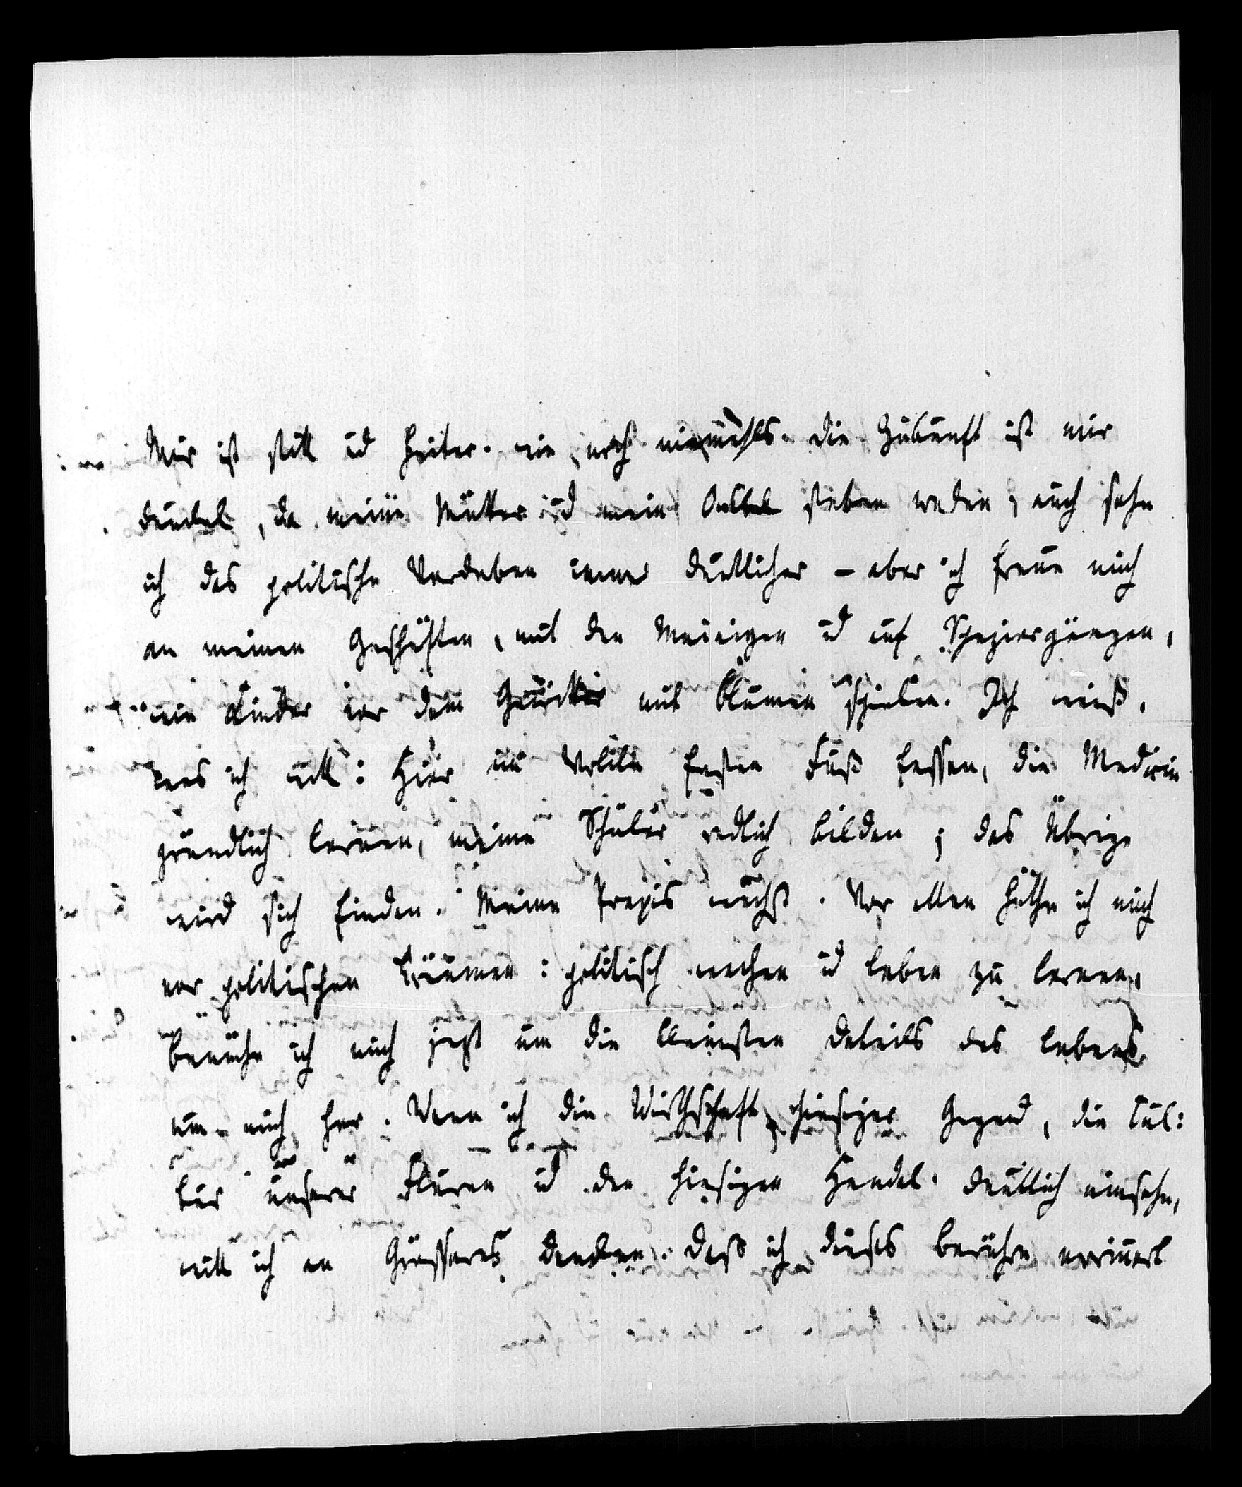 Mir ist still ud heiter. wie noch niemahls. die Zukunft ist mir
dunckel, da meine Mutter ud mein Onckel sterben werden, auch sehe
ich das politische Verderben immer deutlicher – aber ich freue mich
an meinen Geschäften, mit den Meinigen ud auf Spaziergängen,
wie Kinder vor dem Gewitter mit Blumen spielen. Ich weiß,
was ich will: hier im festen Fuß fassen, die Medicin
gründlich lernen, meine Schüler redlich bilden; das Übrige
wird sich finden. Meine Praxis wächst. Vor allen hüthe ich mich
vor politischen Träumen: politisch wachen ud leben zu lernen,
bemühe ich mich jetzt um die kleinsten details des Lebens
um mich her. Wenn ich die Wirthschaft hiesiger Gegend, die Cul:
tur unserer Fluren ud den hiesigen Handel deutlich einsehe,
will ich an Grösseres dencken. daß ich dieses berühre erinnert